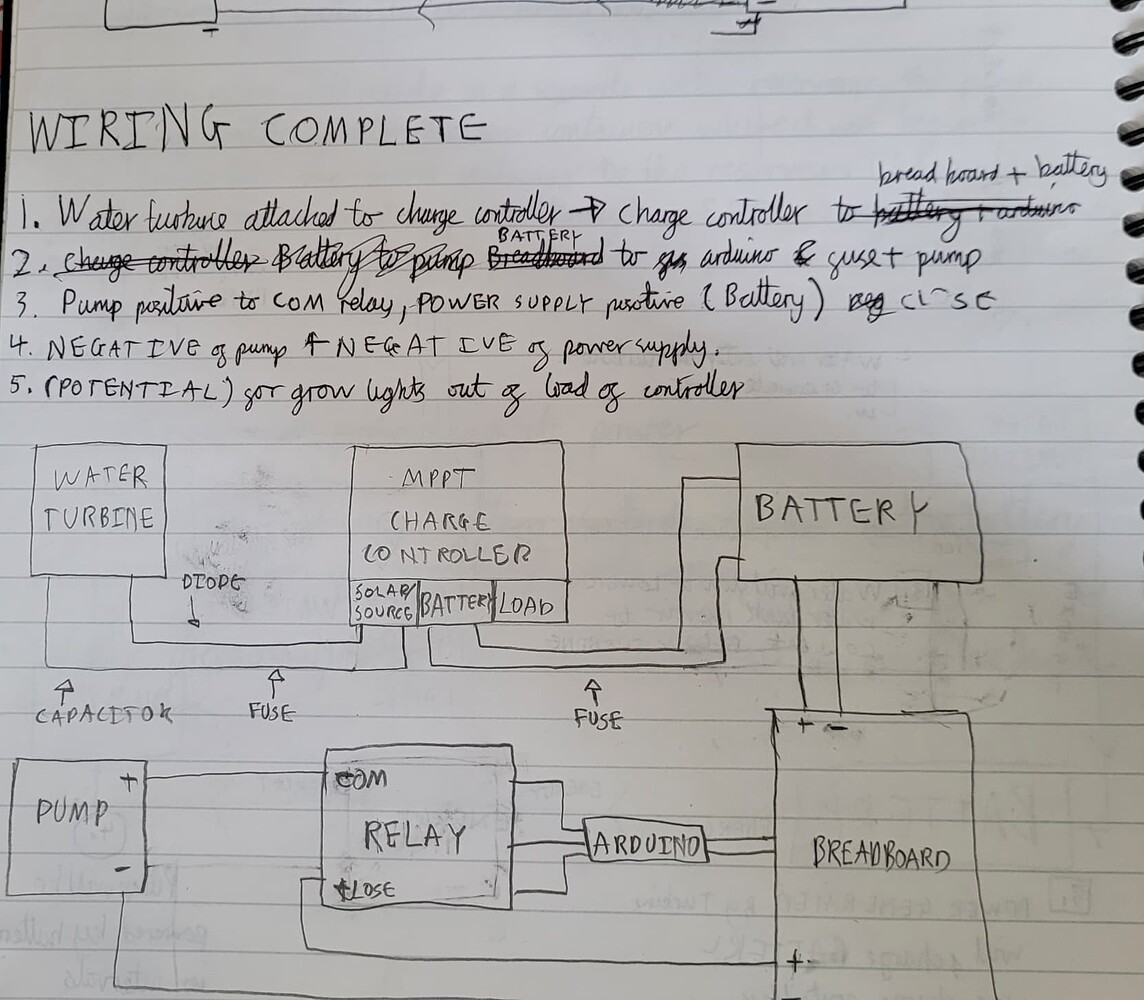 WIRING COMPLETE
bread board + battery
1. Water turbine attached to charge controller → charge controller to battery + arduino
BATTERY
2. Charge controller Battery to pump Breadboard to arduino & guset pump
3. Pump positive to COM relay, POWER SUPPLY posotive (Battery) neg CLOSE
4. NEGATIVE of pump + NEGATIVE of power supply.
5. (POTENTIAL) for grow lights out of load of controller
WATER
TURBINE
MPPT
CHARGE
CONTROLLER
SOLAR/
SOURCE
BATTERY
LOAD
BATTERY
DIODE
CAPACITOR
FUSE
FUSE
+ -
PUMP
+
-
COM
RELAY
CLOSE
ARDUINO
BREADBOARD
+
-